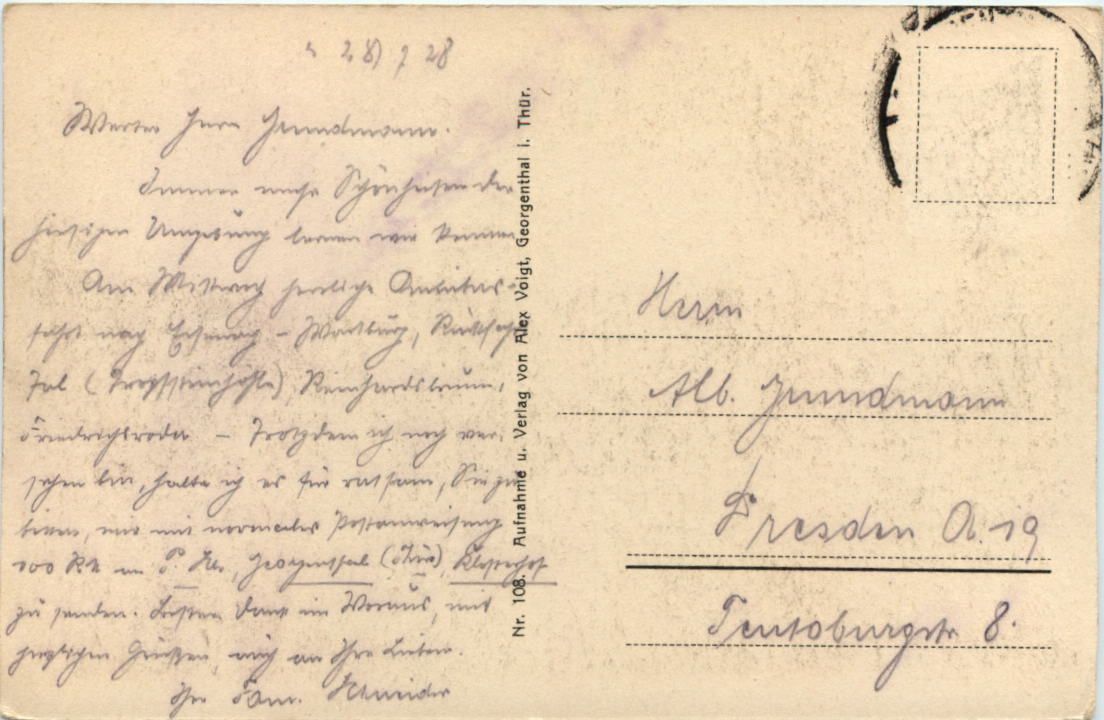 28/7 28
Werter Herr Grundmann.
Immer mehr Schönheiten der
hiesigen Umgebung lernen wir kennen
Am Mittwoch herrliche Autobus-
fahrt nach Eisenach - Wartburg,
Tal (Tropfsteinhöhle), Reinhardsbrunn,
Friedrichsroda - Trotzdem ich noch ver-
sehen bin, halte ich es für ratsam, Sie zu
bitten, mir mit normaler Postanweisung
100 RM an Georgenthal (Thür), Klosterhof
zu senden. Besten Dank im Voraus, mit
herzlichen Grüßen, auch an Ihre Lieben.
Ihre Fam. Schneider
Nr. 108. Aufnahme u. Verlag von Alex Voigt, Georgenthal i. Thür.
Herrn
Alb. Grundmann
Dresden A. 19
Teutoburgstr 8.